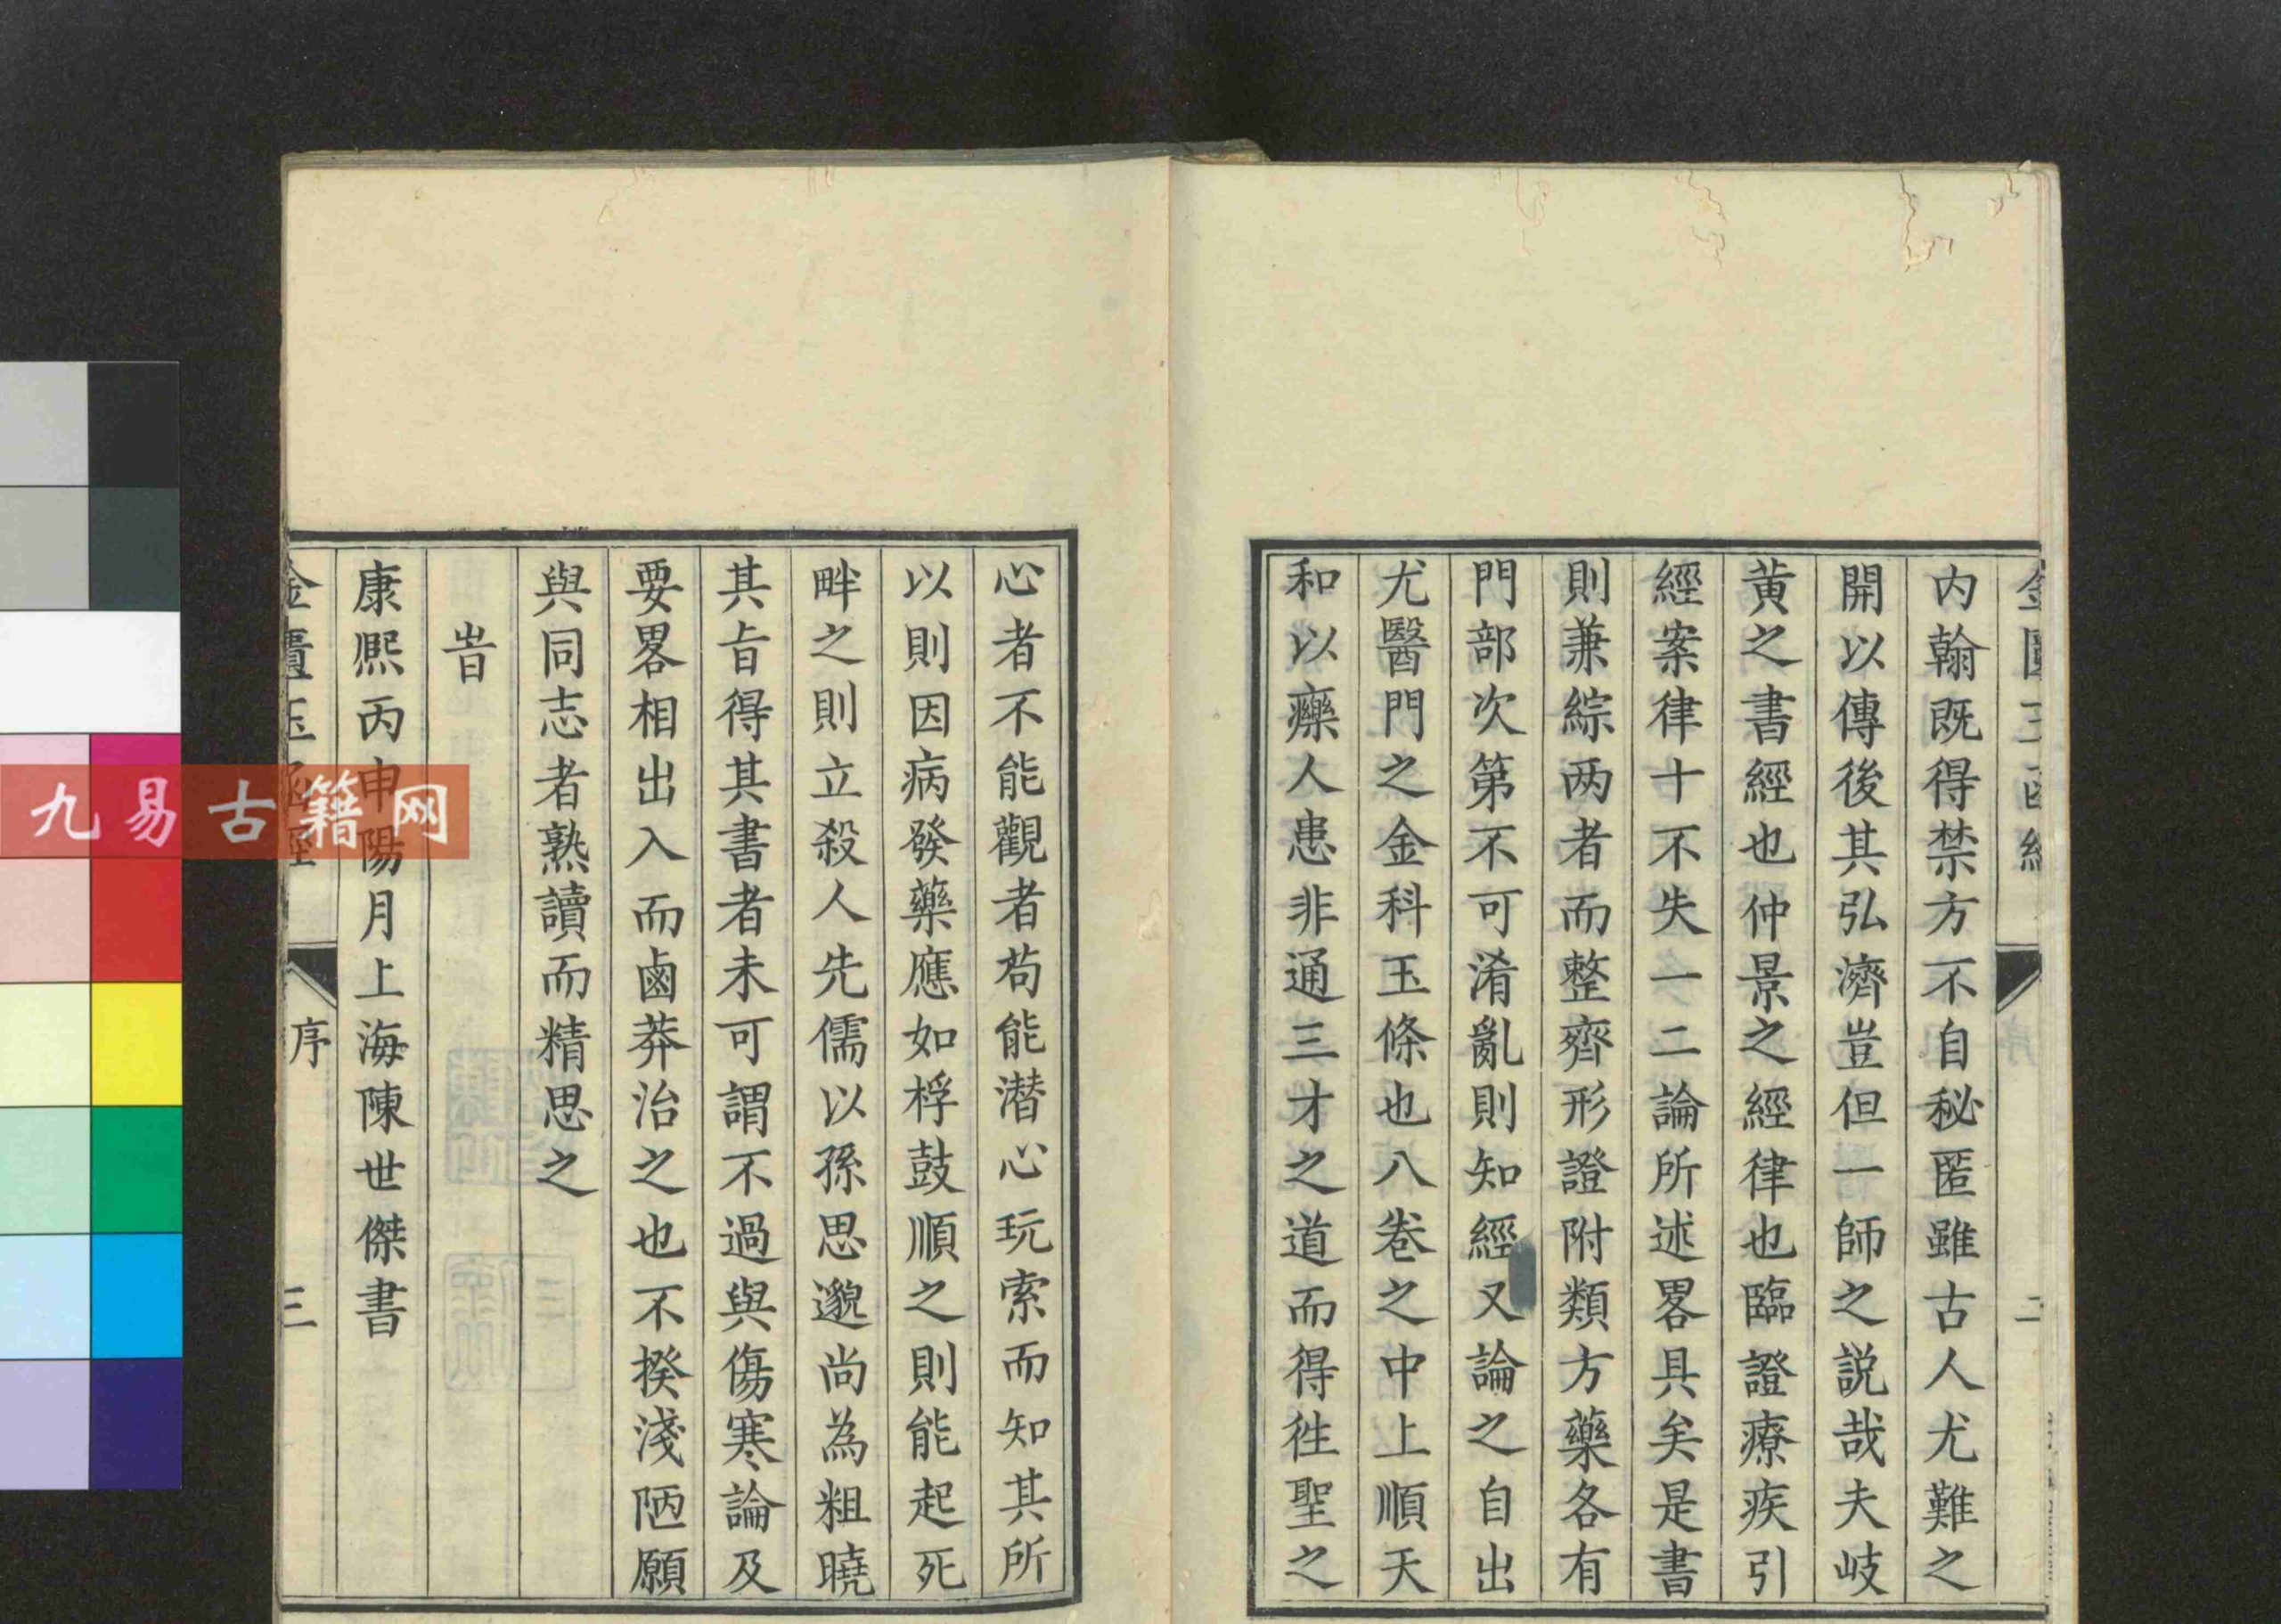 內翰既得禁方不自秘匿雖古人尤難之
開以傳後其弘濟豈但一師之説哉夫岐
黄之書經也仲景之經律也臨證療疾引
經案律十不失一二論所述畧具矣是書
則兼綜两者而整齊形證附類方藥各有
門部次第不可淆亂則知經又論之自出
尤醫門之金科玉條也八卷之中上順天
和以療人患非通三才之道而得徃聖之
心者不能觀者茍能潜心玩索而知其所
以則因病發藥應如桴鼓順之則能起死
畔之則立殺人先儒以孫思邈尚為粗曉
其㫖得其書者未可謂不過與傷寒論及
要畧相出入而鹵莽治之也不揆淺陋願
與同志者熟讀而精思之
旹
康熈丙申陽月上海陳世傑書
金匱玉函經
序
三
九易古籍网